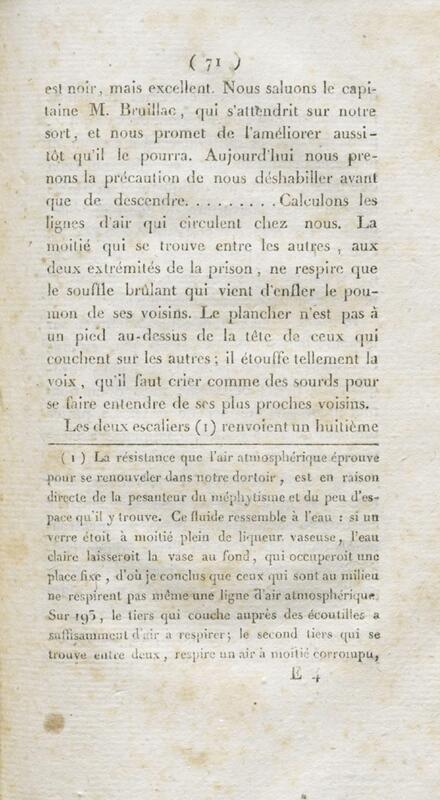 ( 71 )
est noir, mais excellent. Nous saluons le capi-
taine M. Bruillac, qui s'attendrit sur notre
sort, et nous promet de l'améliorer aussi-
tôt qu'il le pourra. Aujourd'hui nous pre-
nons la précaution de nous déshabiller avant
que de descendre. . . . . . . . . Calculons les
lignes d'air qui circulent chez nous. La
moitié qui se trouve entre les autres, aux
deux extrémités de la prison, ne respire que
le souffle brûlant qui vient d'enfler le pou-
mon de ses voisins. Le plancher n'est pas à
un pied au-dessus de la tête de ceux qui
couchent sur les autres; il étouffe tellement la
voix, qu'il faut crier comme des sourds pour
se faire entendre de ses plus proches voisins.
Les deux escaliers (1) renvoient un huitième
(1) La résistance que l'air atmosphérique éprouve
pour se renouveler dans notre dortoir, est en raison
directe de la pesanteur du méphytisme et du peu d'es-
pace qu'il y trouve. Ce fluide ressemble à l'eau : si un
verre étoit à moitié plein de liqueur vaseuse, l'eau
claire laisseroit la vase au fond, qui occuperoit une
place fixe, d'où je conclus que ceux qui sont au milieu
ne respirent pas même une ligne d'air atmosphérique.
Sur 193, le tiers qui couche auprès des écoutilles a
suffisamment d'air a respirer; le second tiers qui se
trouve entre deux, respire un air à moitié corrompu,
E 4